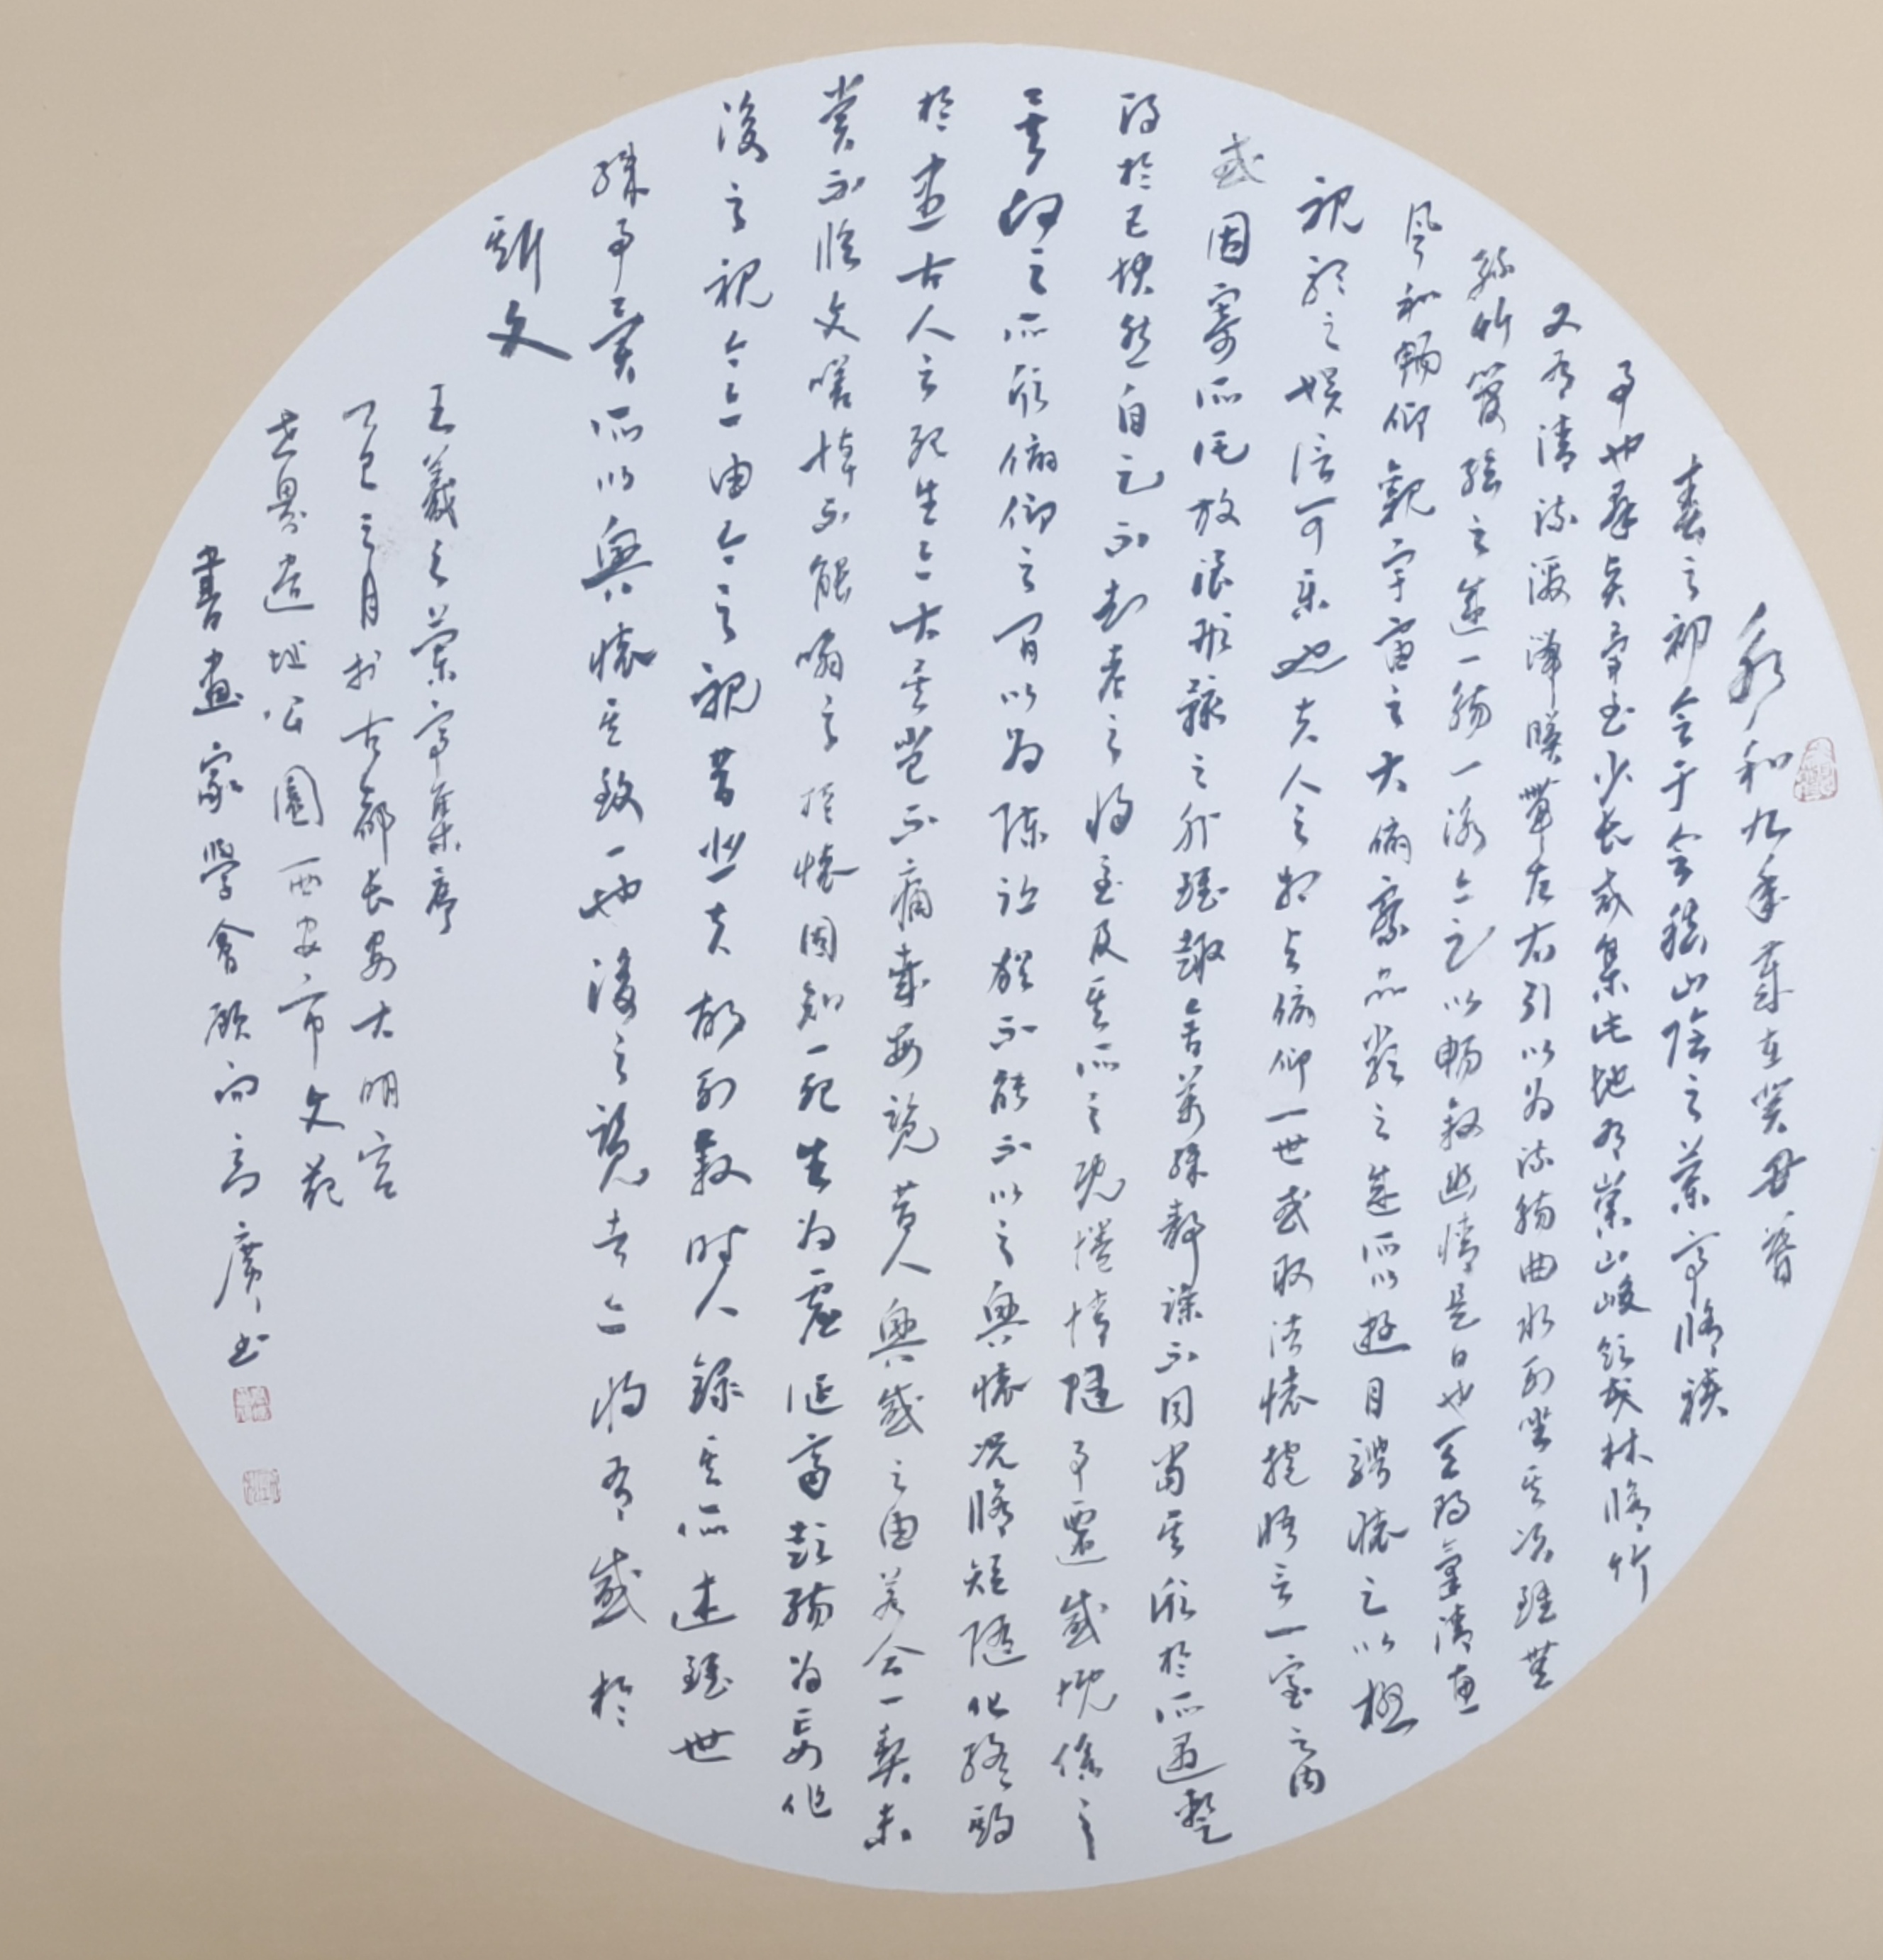 永和九年歲在癸丑暮
春之初會于會稽山陰之蘭亭脩禊
事也群賢畢至少長咸集此地有崇山峻領茂林脩竹
又有清流激湍暎帶左右引以為流觴曲水列坐其次雖無
絲竹管弦之盛一觴一詠亦足以暢敘幽情是日也天朗氣清惠
風和暢仰觀宇宙之大俯察品類之盛所以遊目騁懷足以極
視聽之娛信可樂也夫人之相與俯仰一世或取諸懷抱悟言一室之內
或因寄所託放浪形骸之外雖趣舍萬殊靜躁不同當其欣於所遇暫
得於己怏然自足不知老之將至及其所之既惓情隨事遷感慨係之
矣向之所欣俛仰之間以為陳迹猶不能不以之興懷況脩短隨化終期
於盡古人云死生亦大矣豈不痛哉每覽昔人興感之由若合一契未
嘗不臨文嗟悼不能喻之於懷固知一死生為虛誕齊彭殤為妄作
後之視今亦由今之視昔悲夫故列敘時人錄其所述雖世
殊事異所以興懷其致一也後之覽者亦將有感於
斯文
王羲之蘭亭集序
乙巳之月於古都長安大明宮
世界遺址公園西安市文苑
書畫家學會顧問高廣書